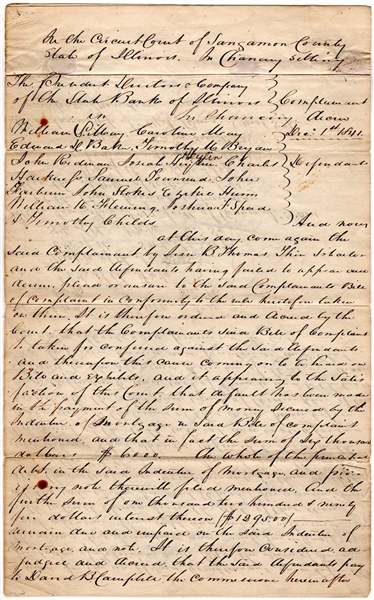 In the Circuit Court of Sangamon County
State of Illinois. In Chancery Sitting
The President Directors & Company
of the State Bank of Illinois Complainant
vs In Chancery Decree
William L May, Caroline May Dec 1st 1841
Edward D Baker, Timothy M
John Rodman Josiah Charles Defendants
Samuel Townsend John
John Stokes Hurn
William R Fleming, Joshua F Speed
& Timothy Childs. And now
at this day come again the
said Complainant by Thomas Their Solicitor
and the said Defendants having failed to appear and
plead or answer to the said Complainants Bill
of Complaint in Conformity to the rule heretofore taken
on them, It is therefore ordered and decreed by the
Court, that the Complainants said Bill of Complaint
be taken for confessed against the said Defendants
and thereupon this cause coming on to be heard on
Bill and exhibits, and it appearing to the satis-
faction of the Court that default has been made
in the payment of the sum of money secured by the
Indenture of Mortgage in said Bill of complaint
mentioned, and that in fact the sum of Six thousand
dollars $6000. the whole of the principal
debt, in the said Indenture of Mortgage and
note therewith filed mentioned, And the
further sum of one thousand two hundred & ninety
five dollars interest thereon $1295.00
remain due and unpaid on the said Indenture of
Mortgage and note. It is therefore considered, ad-
judged and decreed, that the said Defendants pay
to David B Campbell the commissioner hereinafter